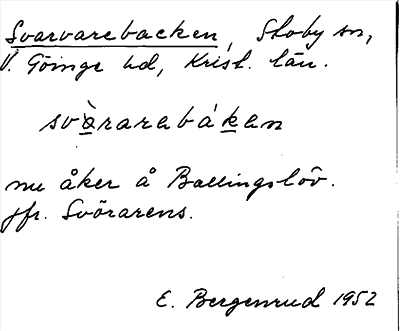 Svarvarebacken, Stoby sn,
V. Göinge hd, Krist. län.
svàrarabákan
nu åker å Ballingslöv.
jfr. Svörarens.
E. Bergenrud 1952